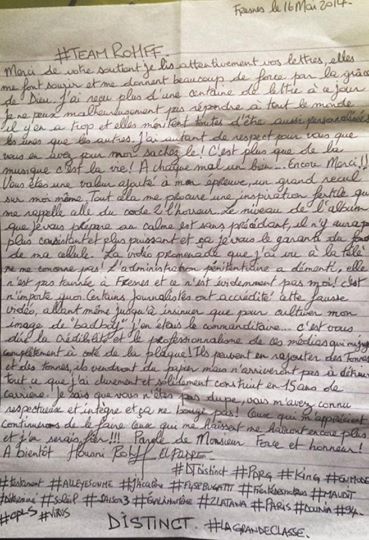 Fresnes le 16 Mai 2014.
#TEAM ROHFF.
Merci de votre soutient je lis attentivement vos lettres, elles
me font sourir et me donnent beaucoup de force par la grâce
de Dieu. j'ai reçu plus d'une centaine de lettre à ce jour
je ne peux malheureusement pas répondre à tout le monde
il y en a trop et elles méritent toutes d'être aussi personnalisées
les unes que les autres. j'ai autant de respect pour vous que
vous en avez pour moi sachez le! C'est plus que de la
musique c'est la vie! A chaque mal un bien... Encore Merci!!
Vous êtes une valeur ajouté à mon épreuve, un grand recul
sur moi même. Tout cela me procure une inspiration fertile qui
me rappelle celle du code de l'honneur. Le niveau de l'album
que je vous prépare au calme est sans précédent, il n'y aura pas
plus consistant et plus puissant et ça je vous le garantis du fond
de ma cellule. La vidéo promenade que j'ai vu à la télé
ne me concerne pas! L'administration pénitentiaire a démenti, elle
n'est pas tournée à Fresnes et ce n'est évidemment pas moi! c'est
n'importe quoi. Certains journalistes ont accrédité cette fausse
vidéo, allant même jusqu'à insinuer que pour cultiver mon
image de "badboy" j'en étais le commanditaire... c'est vous
dire la crédibilité et le professionnalisme de ces médias qui
complètement à coté de la plaque! Ils peuvent en rajouter des tonnes
et des tonnes, ils vendront du papier mais n'arriveront pas à détruire
tout ce que j'ai durement et solidement construit en 15 ans de
carrière. Je sais que vous n'êtes pas dupe, vous m'avez connu
respectueux et intègre et ça ne bouge pas! Ceux qui m'apprécient
continueront de le faire. Ceux qui me haïssent me haïront encore plus
et j'en serais fier!!! Parole de Monsieur Force et honneur!
A bientôt Housni Rohff El Padre
#DJ Distinct #PDRG #KING #OUTMODE
#Testament #ALLEYESONME #JACOBIN #FLYSEBUGATTI #MAUDIT
#Déterminé #Soleil #SAISON3 #EGALAMOIMÊME #ZLATANA #PARIS #DOUNIA #94
#VIRUS
DISTINCT. #LAGRANDECLASSE.